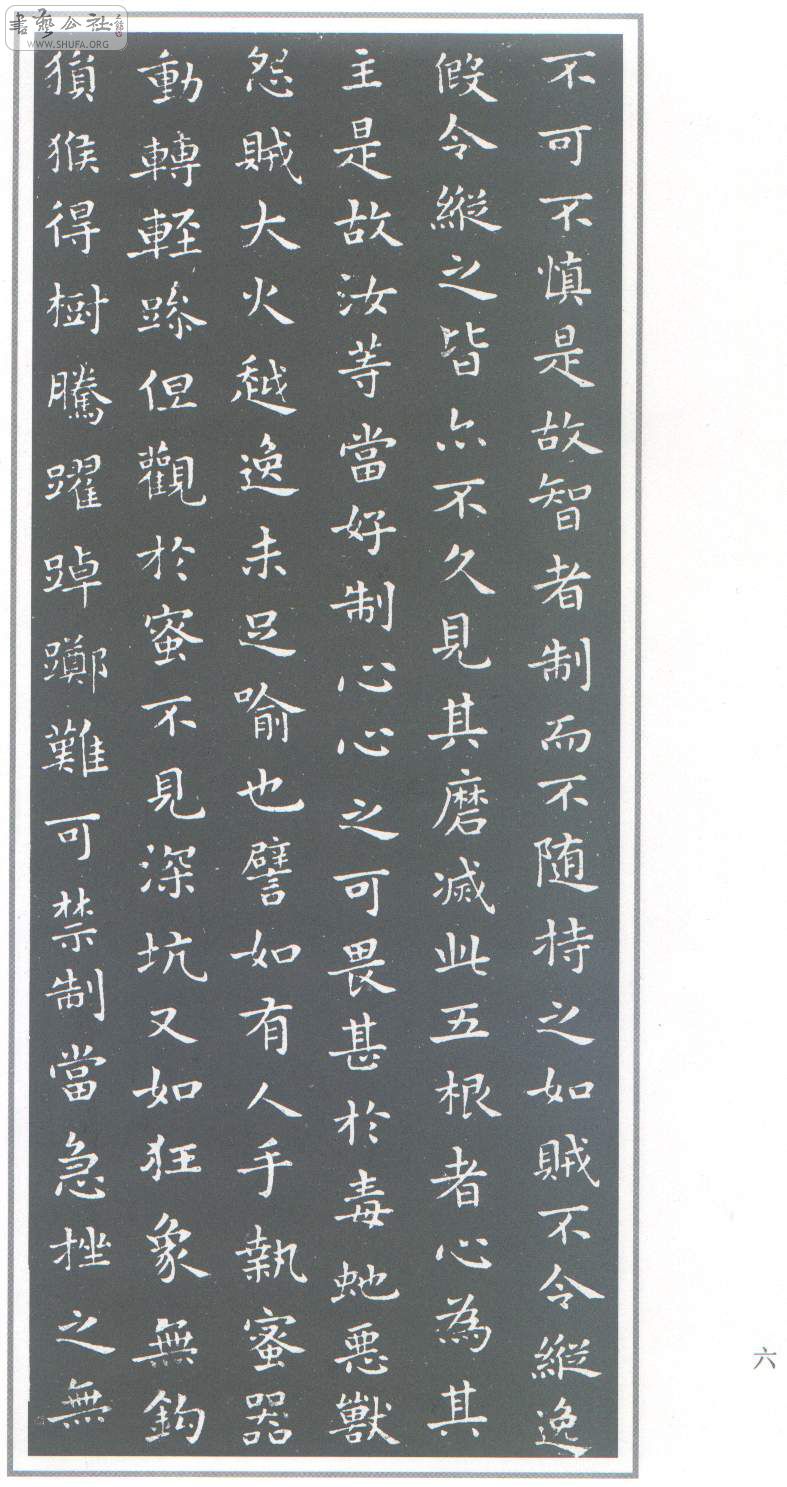 書藝公社
WWW.SHUFA.ORG
不可不慎是故智者制而不随持之如賊不令縱逸
假令縱之皆亦不久見其磨滅此五根者心為其
主是故汝等當好制心心之可畏甚於毒虵惡獸
怨賊大火越逸未足喻也譬如有人手執蜜器
動轉輕躁但觀於蜜不見深坑又如狂象無鈎
猨猴得樹騰躍踔躑難可禁制當急挫之無
六